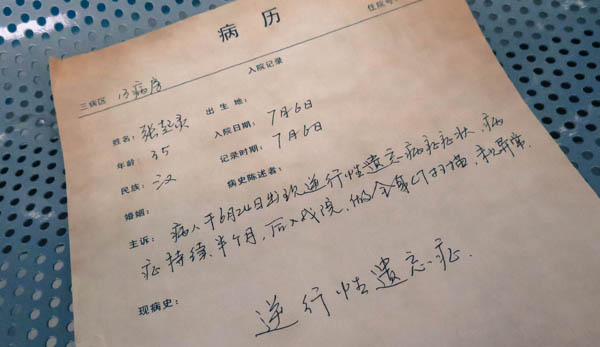 病历
住院号
入院记录
三病区 13病房
姓名：张起灵 出生地：
年龄 35 入院日期：7月6日
民族：汉 记录时期：7月6日
婚姻： 病史陈述者：
主诉：病人于6月24日出现逆行性遗忘病症症状，病
症持续半个月，后入我院，做全身CT扫描，未异常．
现病史：
逆行性遗忘症．